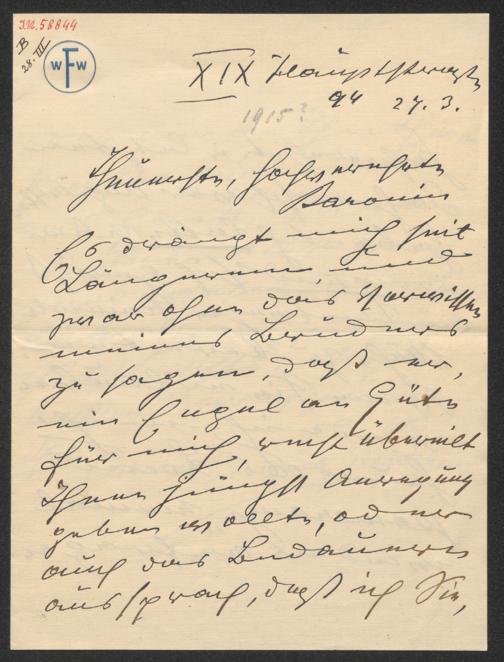 I.N. 58844
B
28. III
W F W
XIX Hauptstraße
94 27. 3.
1915?
Theuerste, hochverehrte
Baronin
Es drängt mich seit
Längerem und
zwar ohne das Vorwissen
meines Bruders
zu sagen, daß er,
ein Engel an Güte
für mich, übereilt
Ihnen jüngst Anregung
geben wollte, oder
auch das Bedauern
aussprach, daß ich Sie,